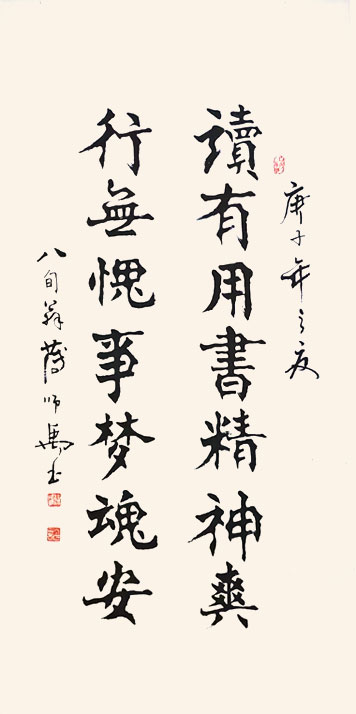 庚子年之夏
讀有用書精神爽
行無愧事梦魂安
八旬翁薄师禹书